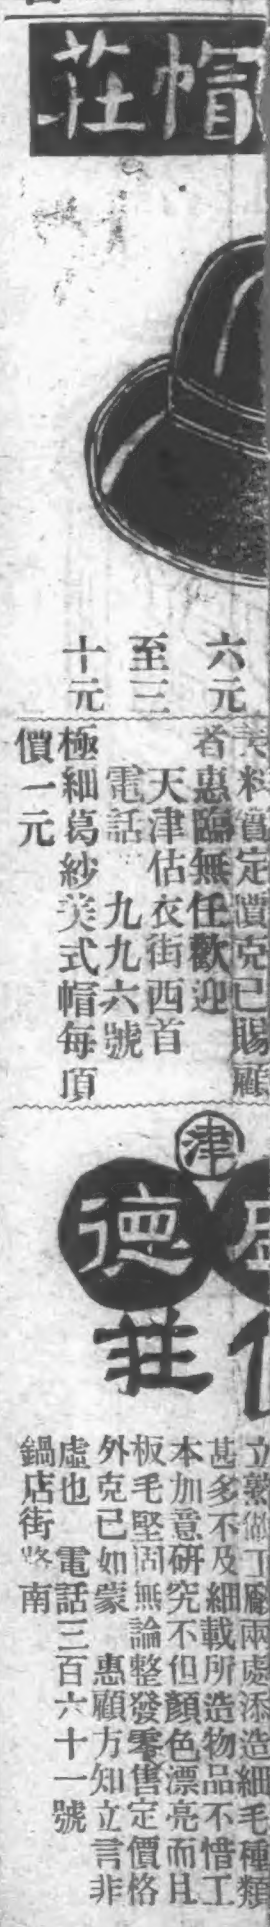 帽莊
六元
至三
十元
美料實定價克己賜顧
者惠臨無任歡迎
天津估衣街西首
電話 九九六號
極細葛紗美式帽每頂
價一元
津
盛德
莊
立熟做工廠兩處添造細毛種類
甚多不及細載所造物品不惜工
本加意研究不但顏色漂亮而且
板毛堅固無論整發零售定價格
外克已如蒙 惠顧方知立言非
虛也 電話三百六十一號
鍋店街路南